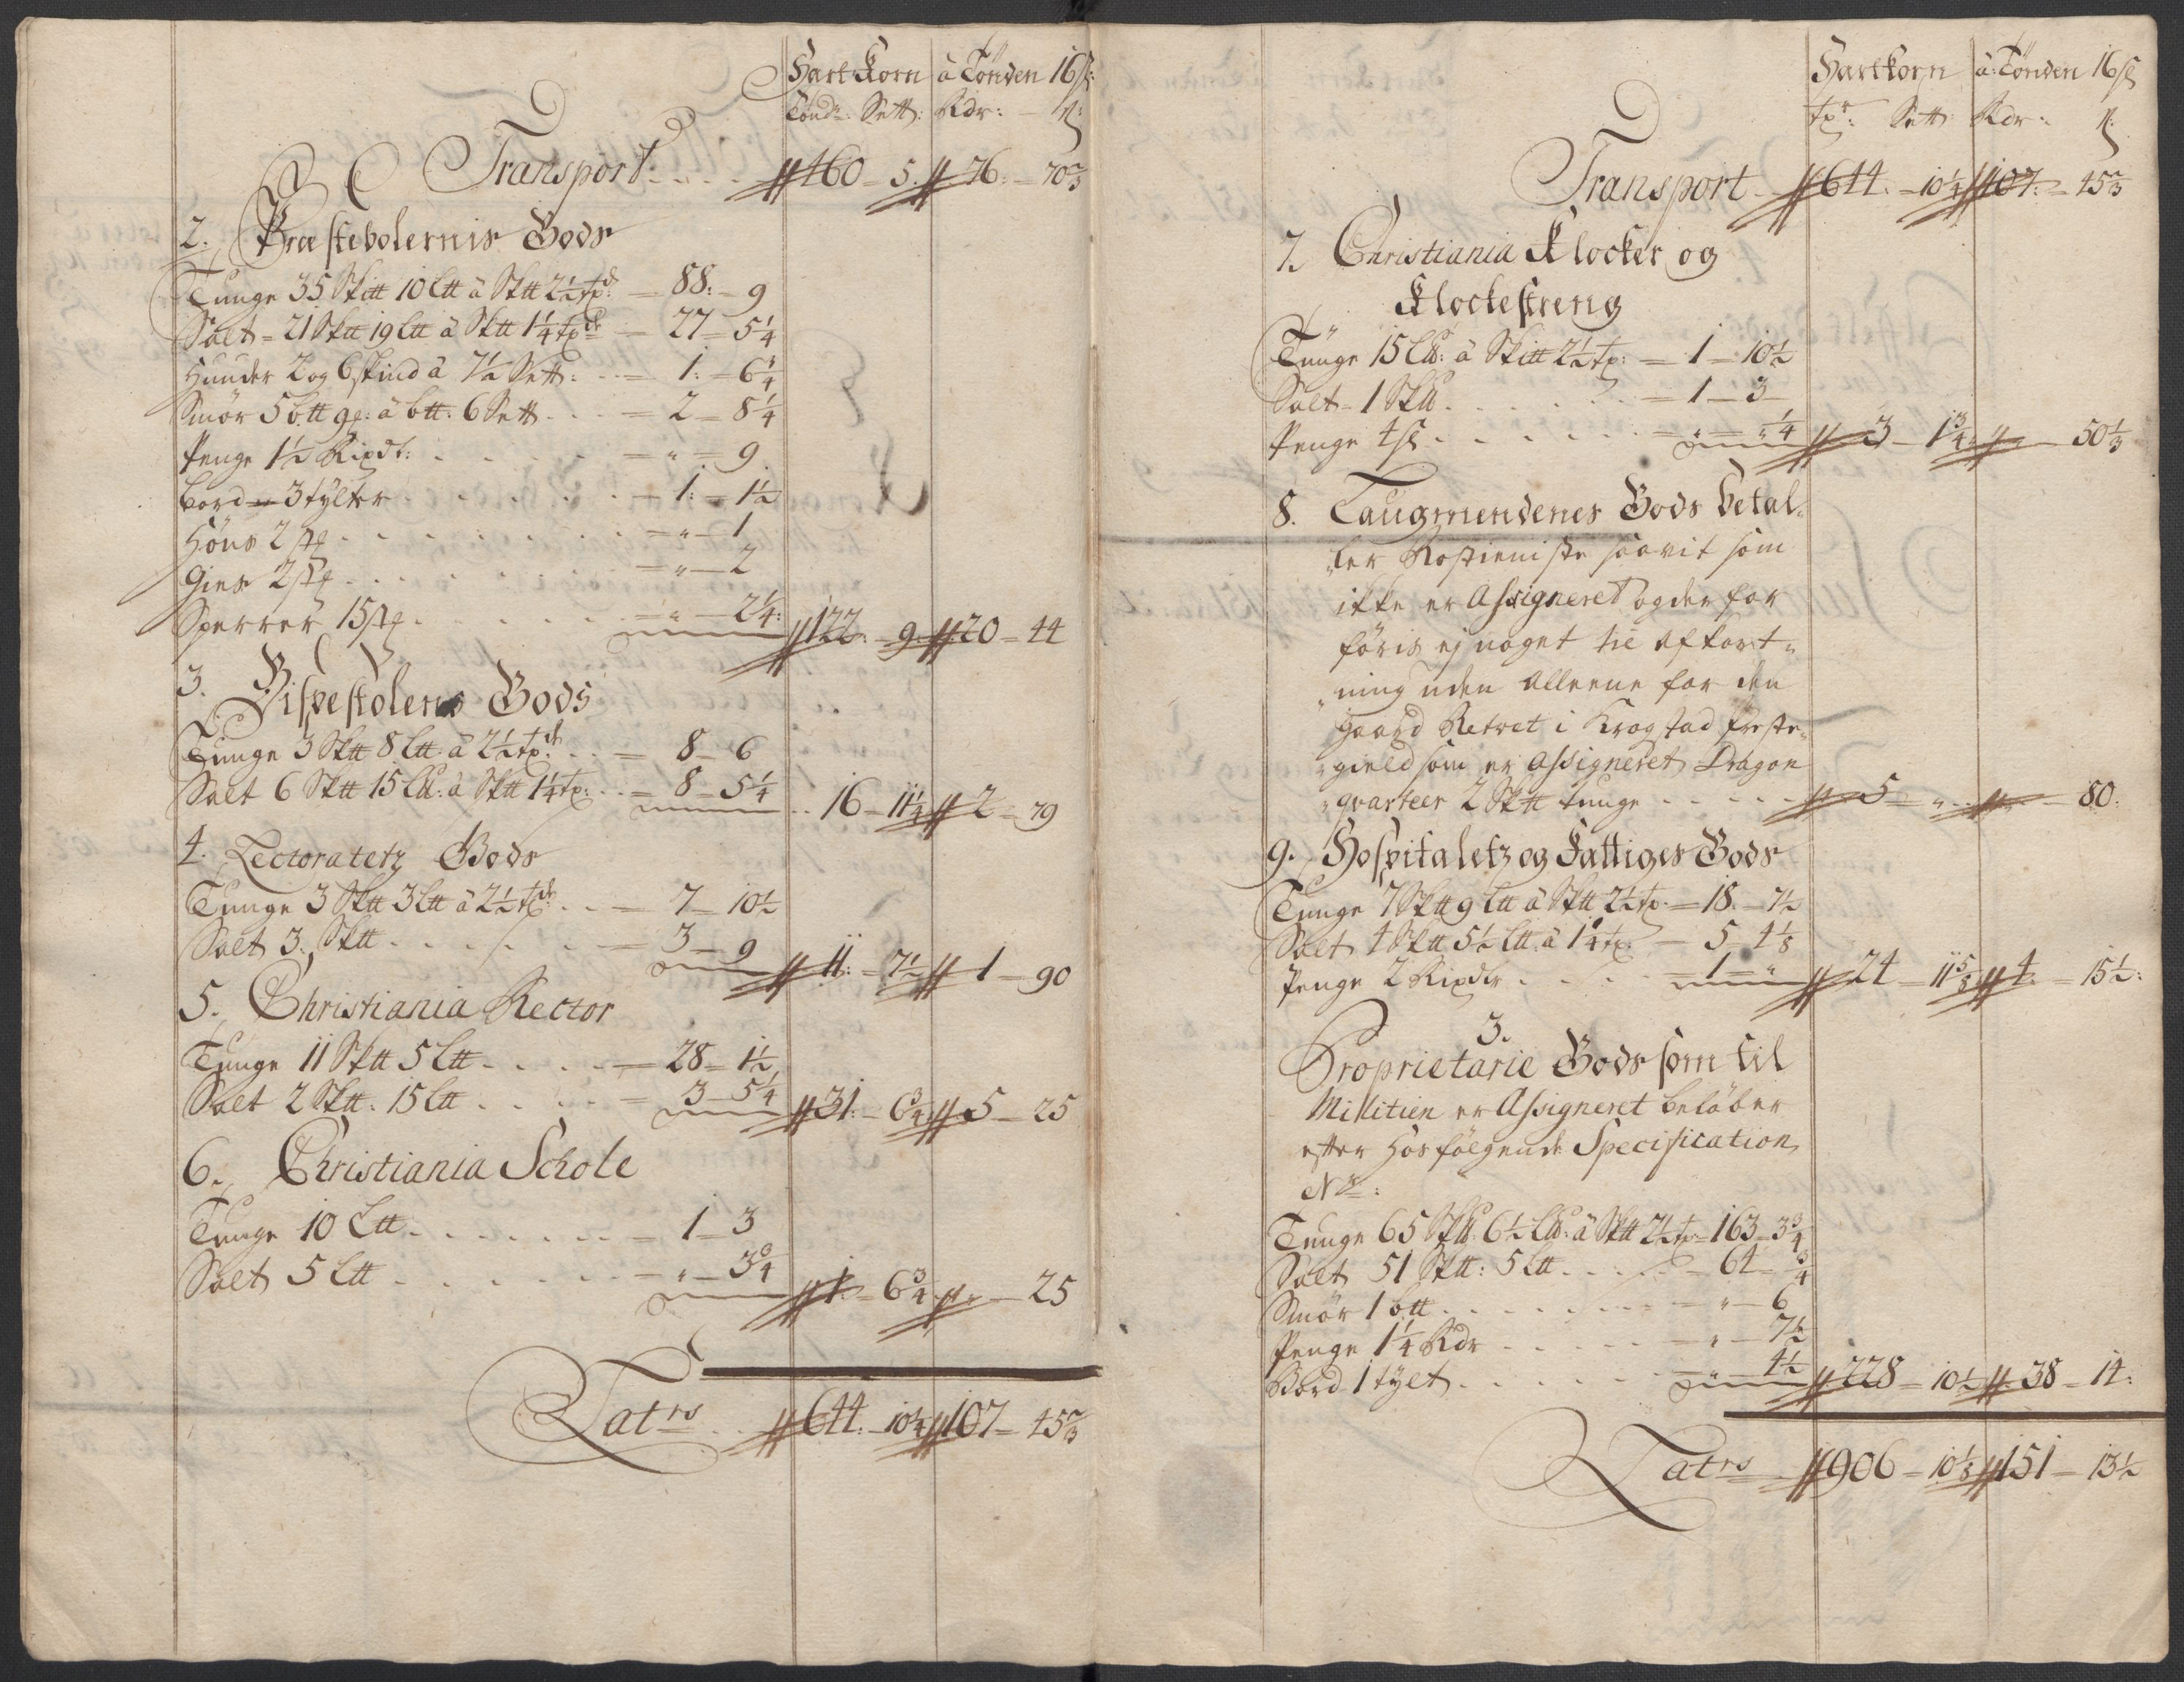 Hartkorn à Tönden 16 ß:
Tönd: Sett: Rdr: ß:
Transport. . . . 460 – 5. 76: – 70 2/3
2. Præstebolernis Gods
Tunge 35 Sktt 10 Ltt à Sktt 2½ tp: = 88: – 9
Salt = 21 Sktt 19 Ltt à Sktt 1¼ tp = 27 – 5¼
Huuder 2 og 6 skind à 7½ Sett: . . = 1: – 6¾
Smör 5 btt 9 : à btt: 6 Sett . . . = 2 – 8¼
Penge 1½ Rixdr: . . . . . = " – 9
Bord = 3 tylter . . . . . = 1: – 1½
Höns 2 . . . . . . . = " – 1
Gies 2 . . . . . . . = " – 2
Sperrer 15 . . . . . . = " – 2¼: 122: – 9 20 – 44
3. Bispestolens Gods
Tunge 3 Sktt 8 Ltt à 2½ tp: . . = 8 – 6
Salt 6 Sktt 15 Ltt: à Sktt 1¼ tp: . . = 8 – 5¼ . . 16 – 11¼ 2 – 79
4. Lectoratetz Gods
Tunge 3 Sktt 3 Ltt à 2½ tp: . . = 7 – 10½
Salt 3: Sktt . . . . . . = 3 – 9 11: – 7½ 1 – 90
5. Christiania Rector
Tunge 11 Sktt 5 Ltt . . . . = 28 – 1½
Salt 2 Sktt: 15 Ltt . . . . = 3 – 5¼ 31: – 6¾ 5 – 25
6. Christiania Schole
Tunge 10 Ltt . . . . . . . = 1 – 3
Salt 5 Ltt . . . . . . = " – 3¾ 1 – 6¾ " – 25
Lat.rs . . 644: – 10¼ 107 – 45 2/3
Hartkorn à: Tönden 16 ß
tp: Sett: Rdr: ß:
Transport. 644: – 10¼ 107: – 45 2/3
7. Christiania Klocker og
Klockestreng
Tunge 15 Ltt: à Sktt 2½ tp: = 1 – 10½
Salt – 1 Sktt . . . . . . = 1 – 3
Penge 4 ß . . . . . . = " – " ¼ 3 – 1¾ " – 50 1/3
8. Laugmendenes Gods betal-
ler Rostieniste saavit som
ikke er Assigneret og derfor
föris ej noget til afkort-
ning uden alleene for den
Gaard Retvet i Krogstad Preste-
gield som er Assigneret Dragon
qvarteer 2 Sktt tunge . . . . . 5 – " – 80:
9. Hospitaletz og Fattiges Gods
Tunge 7 Sktt 9 Ltt à Sktt 2½ tp. = 18. – 7½
Salt 4 Sktt 5½ Ltt: à 1¼ tp: – 5 – 4⅛
Penge 2 Rixdr . . . . = 1 – " 24 – 11⅝ 4 – 15½:
3.
Proprietarie Gods som til
Militien er Assigneret belöber
efter hosfölgende Specification
No:
Tunge 65 Sktt: 6½ Ltt: à Sktt 2½ tp = 163 – 3¾
Salt 51 Sktt: 5 Ltt . . . . . = 64 – ¾
Smör 1 btt . . . . . . . = " – 6
Penge 1¼ Rdr . . . . . = " – 7½
Bord 1 tylt . . . . . . = " – 4½ 228 – 10½ 38 – 14:
Lat.rs 906 – 10⅛ 151 – 13½